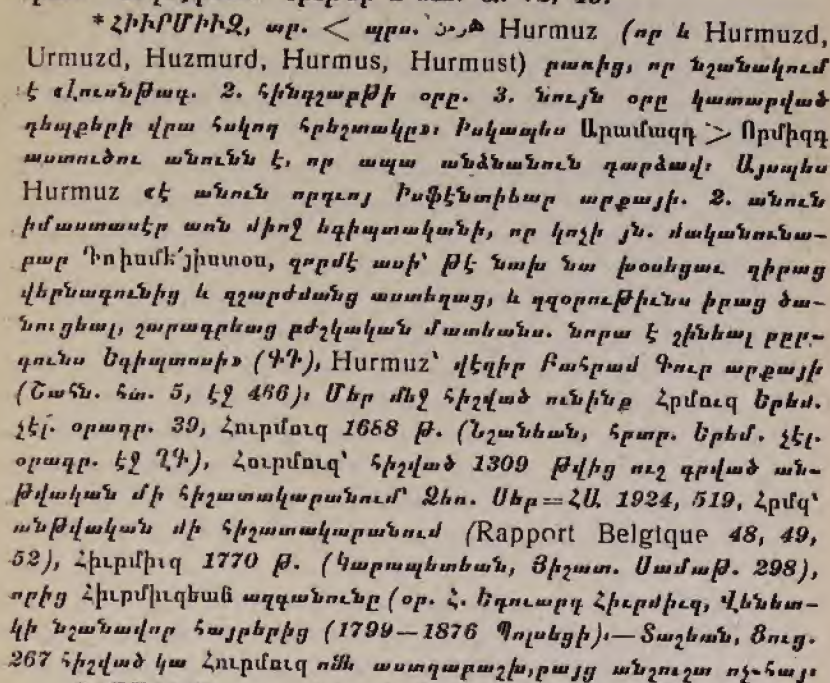 *ՀԻՒՐՄԻՒԶ, ար. < պրս. هرمز Hurmuz (որ և Hurmuzd,
Urmuzd, Huzmurd, Hurmus, Hurmust) բառից, որ նշանակում
է «Լուսնթագ. 2. հինգշաբթի օրը. 3. նույն օրը կատարված
դեպքերի վրա հսկող հրեշտակը»։ Իսկապես Արամազդ > Որմիզդ
աստուծու անունն է, որ ապա անձնանուն դարձավ։ Այսպես
Hurmuz «է անուն որդւոյ Իսֆէնտիեար արքայի. 2. անուն
իմաստասէր առն միոջ եգիպտականի, որ կոչի յն. մականունա-
բար զորմէ ասի՝ թէ նախ նա խօսեցաւ զիրաց
վերնագունից և զշարժմանց աստեղաց, և զզօրութիւնս իրաց ծա-
նուցեալ, շարագրեաց բժշկական մատեանս. նորա է շինեալ բըր-
գունս Եգիպտոսի» (ԳԴ), Hurmuz՝ վէզիր Բահրամ Գուր արքայի
(Շահն. հտ. 5, էջ 466)։ Մեր մեջ հիշված ունինք Հրմուզ Երեմ.
չէլ. օրագր. 39, Հուրմուզ 1688 թ. (Նշանեան, հրտր. Երեմ. չէլ.
օրագր. էջ ՂԳ), Հուրմուզ՝ հիշված 1309 թվից ուշ գրված ան-
թվական մի հիշատակարանում՝ Ձեռ. Սեր=ՀԱ 1924, 519, Հրմզ՝
անթվական մի հիշատակարանում (Rapport Belgique 48, 49,
52), Հիւրմիւզ 1770 թ. (Կարապետեան, Յիշատ. Սամաթ. 298),
որից Հիւրմիւզեան ազգանունը (օր. Հ. Եդուարդ Հիւրմիւզ, Վենետ-
կի նշանավոր հայրերից (1799—1876 Պոլսեցի)։—Տաշեան, Ցուց.
267 հիշված կա Հուրմուզ ոմն աստղաբաշխ, բայց անշուշտ ոչ-հայ։